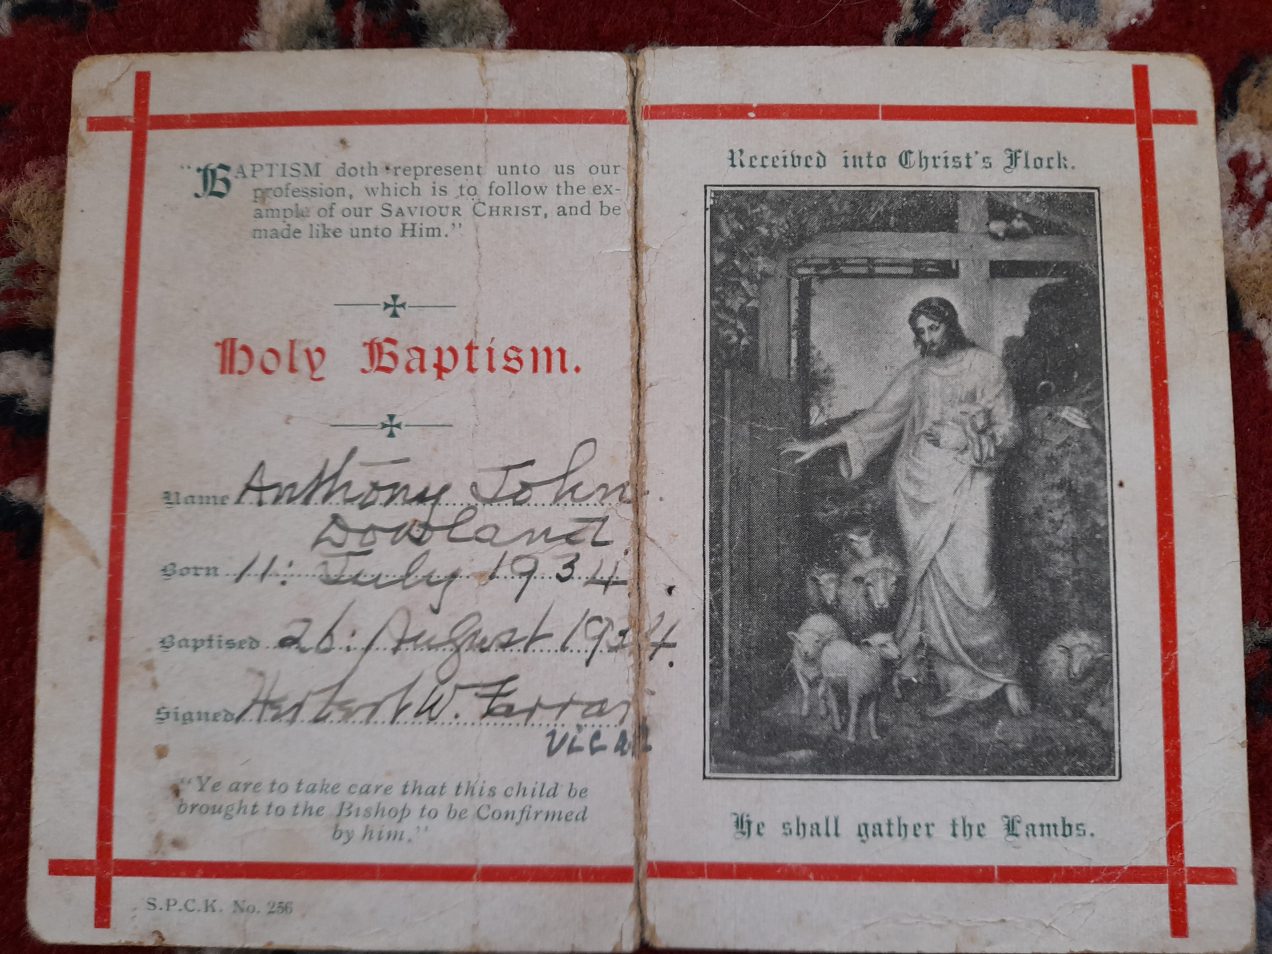 "BAPTISM doth represent unto us our
profession, which is to follow the ex-
ample of our SAVIOUR CHRIST, and be
made like unto Him."
Holy Baptism.
Name Anthony John
Dowland
Born 11: July 1934
Baptised 26: August 1934.
Signed Herbert W. Ferrar
VICAR
"Ye are to take care that this child be
brought to the Bishop to be Confirmed
by him."
S.P.C.K. No. 256
Received into Christ's Flock.
He shall gather the Lambs.